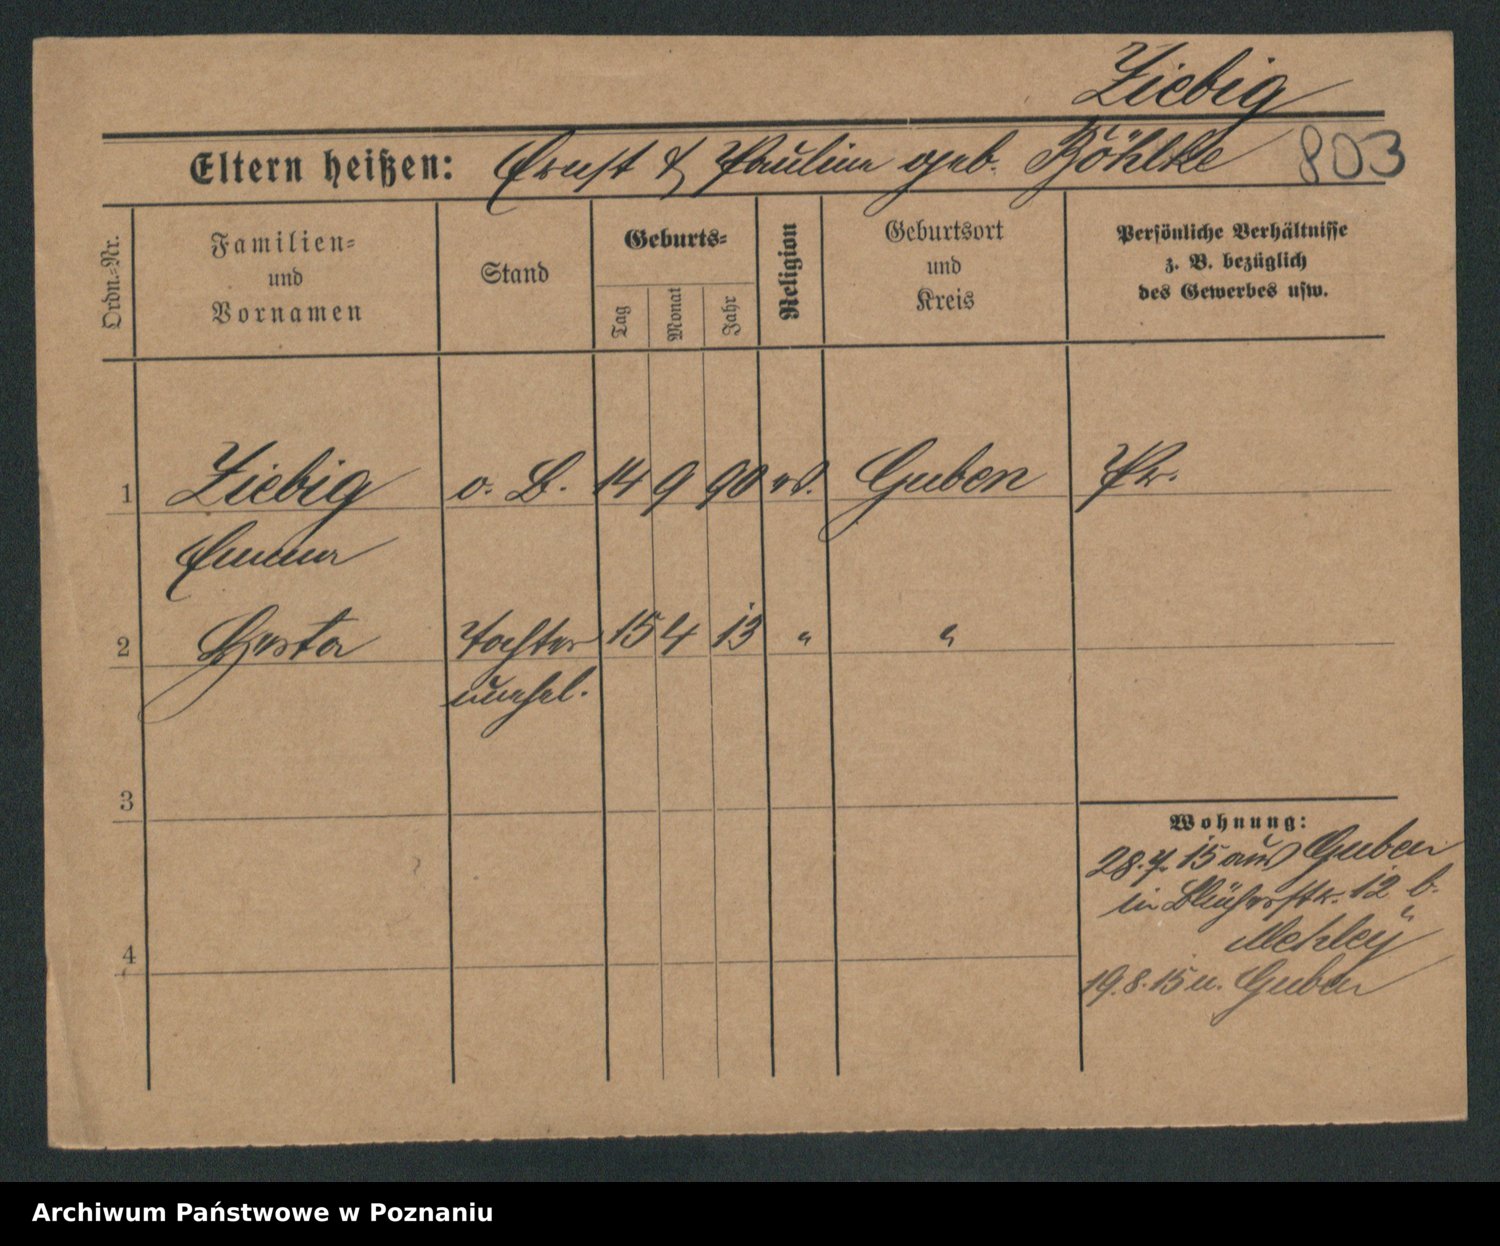 Ziebig
Eltern heißen: Ernst & Pauline geb. Böhlke 803
Ordn.-Nr.
Familien-
und
Vornamen
Stand
Geburts-
Tag
Monat
Jahr
Religion
Geburtsort
und
Kreis
Persönliche Verhältnisse
z. B. bezüglich
des Gewerbes usw.
1 Ziebig o. B. 14 9 90 ev. Guben Pr.
Emma
2 Herta Tochter 15 4 13 " "
unehel.
3
4
Wohnung:
28.7.15 aus Guben
in Blücherstr. 12 b.
19.8.15 n. Guben
Archiwum Państwowe w Poznaniu